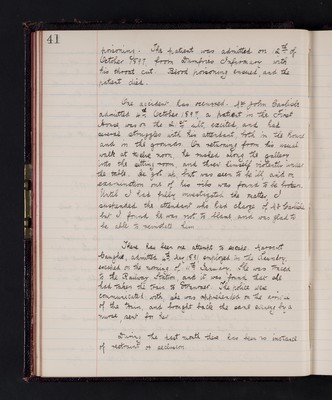 41
poisoning. The patient was admitted on 2nd of
October 1897 from Dumfries Infirmary with
his throat cut. Blood poisoning ensued and the
patient died.
One accident has occurred. Mr John
admitted October 1897, a patient in the First
House was on the all, excited, and had
several struggles with his attendant both in the House
and in the grounds. On returning from his usual
walk at twelve noon, he rushed along the gallery
into the sitting room, and threw himself violently under
the table. He got up, but was seen to be ill, and on
examination one of his ribs was found to be broken.
Until I had fully investigated the matter I
suspended the attendant who had charge of Mr
but I found he was not to blame, and was glad to
be able to reinstate him.
There has been one attempt to escape. Margaret
admitted employed in the Laundry,
escaped on the morning of 11th January. She was traced
to the Railway Station, and it was found that she
had taken the train to The police were
communicated with, she was apprehended on the arrival
of the train, and brought back the same evening by a
nurse sent for her.
During the past month there has been no instance
of restraint or seclusion.